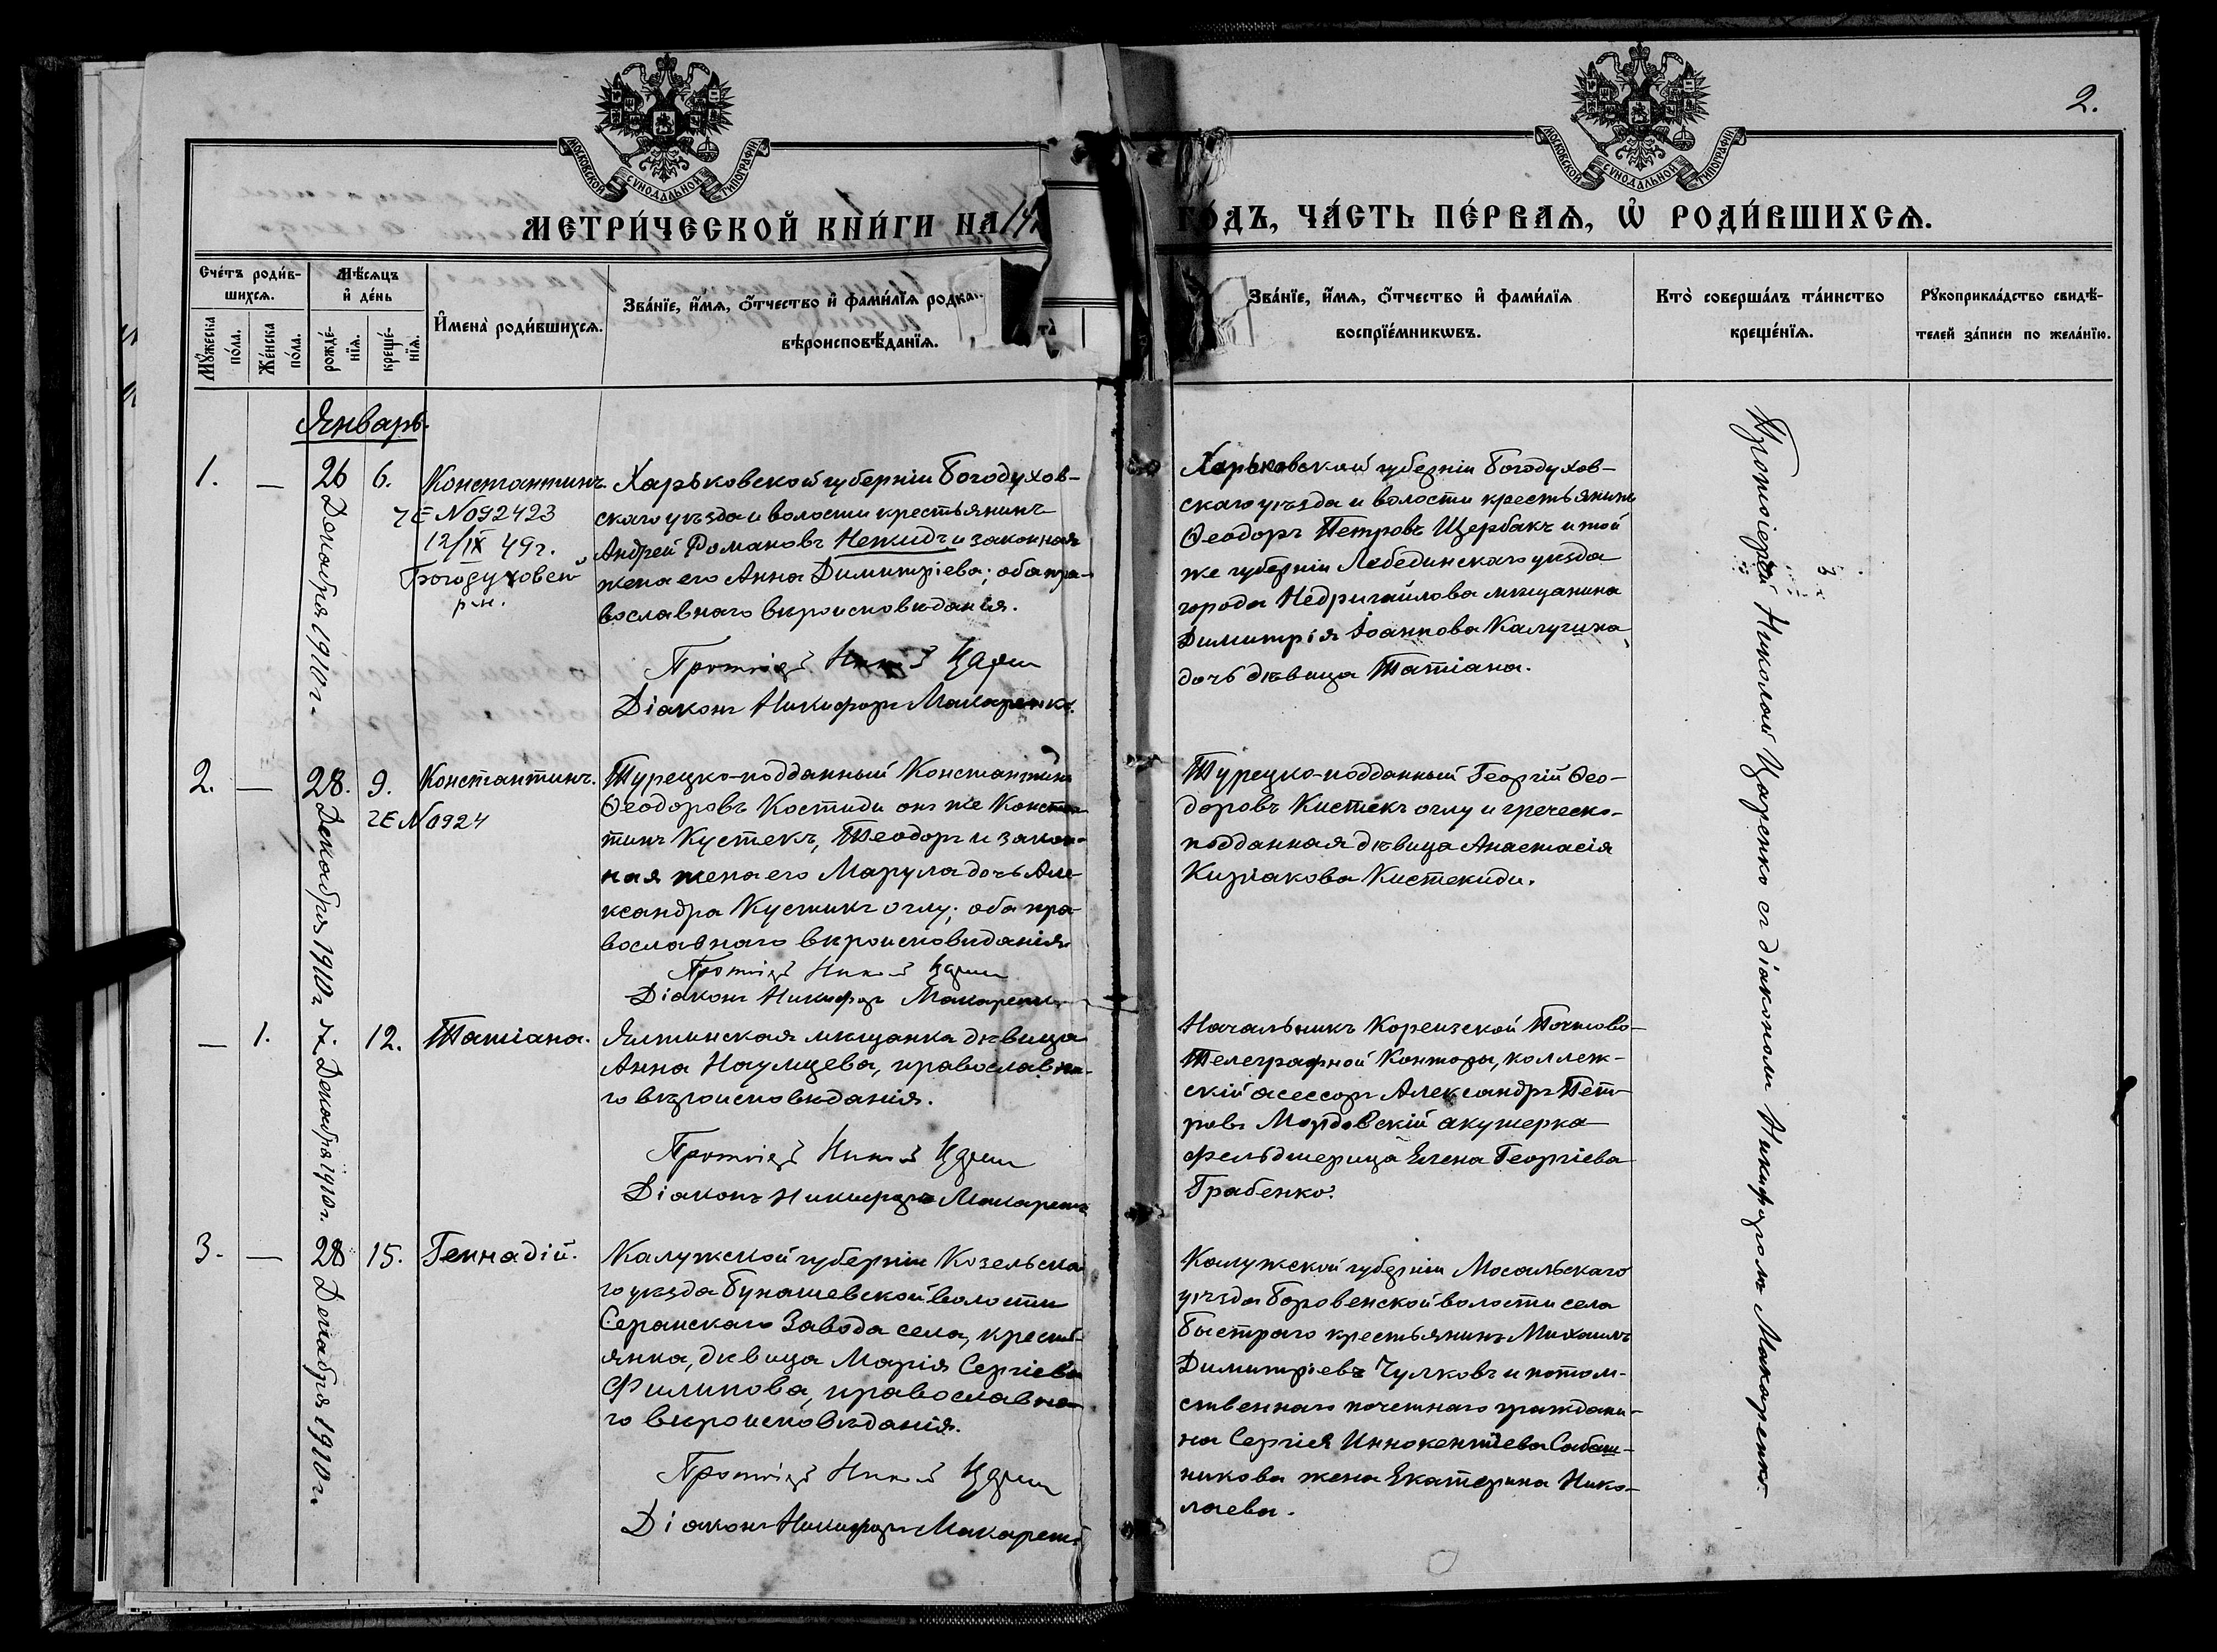 2.
МОСКОВСКОЙ СѴНОДАЛЬНОЙ ТИПОГРАФІИ
МОСКОВСКОЙ СѴНОДАЛЬНОЙ ТИПОГРАФІИ
МЕТРИ́ЧЕСКОЙ КНИ́ГИ НА 191
ГО́ДЪ, ЧА́СТЬ ПЕ́РВАѦ, Ѽ РОДИ́ВШИХСѦ.
Сче́тъ роди́в-
шихсѧ.
Мꙋ́жеска
по́ла.
Же́нска
по́ла.
Мѣ́сѧцъ
и҆ де́нь
рожде́-
нїѧ.
креще́-
нїѧ.
И҆мена̀ роди́вшихсѧ.
Зва́нїе, и҆́мѧ, ѻ҆́тчество и҆ фами́лїѧ
вѣроисповѣ́данїѧ.
Зва́нїе, и҆́мѧ, ѻ҆́тчество и҆ фами́лїѧ
воспрїе́мникѡвъ.
Кто̀ соверша́лъ та́инство
креще́нїѧ.
Рꙋкоприкла́дство свидѣ́-
телей за́писи по жела́нїю.
Январь.
1.
—
26
Декабря 1910 г.
6.
Константинъ.
ЧЕ N092423
12/IX 49г.
Богодуховск
р-н.
Харьковской губерніи Богодухов-
скаго уѣзда и волости крестьянинъ
Андрей Романовъ Нежидъ и законная
жена его Анна Димитріева; оба пра-
вославнаго вѣроисповѣданія.
Діаконъ Никифоръ Макаренко.
Харьковской губерніи Богодухов-
скаго уѣзда и волости крестьянинъ
Ѳеодоръ Петровъ Щербакъ и той
же губерніи Лебединскаго уѣзда
города Недригайлова мѣщанина
Димитрія Іоаннова Калугина
дочь дѣвица Татіана.
Протоіерей Николай Царенко съ діакономъ Никифоромъ Макаренко
2.
—
28.
Декабря 1910 г.
9.
Константинъ.
ЧЕ N0924
Турецко-подданный Константинъ
Ѳеодоровъ Костиди онъ же Констан-
тинъ Кустекъ, Теодоръ и закон-
ная жена его Марула дочь Але-
ксандра Кустикъ оглу; оба пра-
вославнаго вѣроисповѣданія
Діаконъ Никифоръ Макаренко
Турецко-подданный Георгій Ѳео-
доровъ Кистекъ оглу и греческо-
подданная дѣвица Анастасія
Киріакова Кистекиди.
—
1.
Декабря 1910 г.
12.
Татіана.
Ялтинская мѣщанка дѣвица
Анна Наумцева, православна-
го вѣроисповѣданія.
Діаконъ Никифоръ Макаренко
Начальникъ Кореизской Почтово-
Телеграфной Конторы, коллеж-
скій асессоръ Александръ Пет-
ровъ Мордовскій акушерка
фельдшерица Елена Георгіева
Грабенко.
3.
—
28
Декабря 1910 г.
15.
Геннадій.
Калужской губерніи Козельска-
го уѣзда Бунашевской волости
Серанскаго Завода села, кресть-
янка, дѣвица Марія Сергіева
Филипова, православна-
го вѣроисповѣданія.
Діаконъ Никифоръ Макаренко
Калужской губерніи Мосальскаго
уѣзда Боровенской волости села
Быстраго крестьянинъ Михаилъ
Димитріевъ Чулковъ и потом-
ственнаго почетнаго граждани-
на Сергія Иннокентіева Сабаш-
никова жена Екатерина Нико-
лаева.